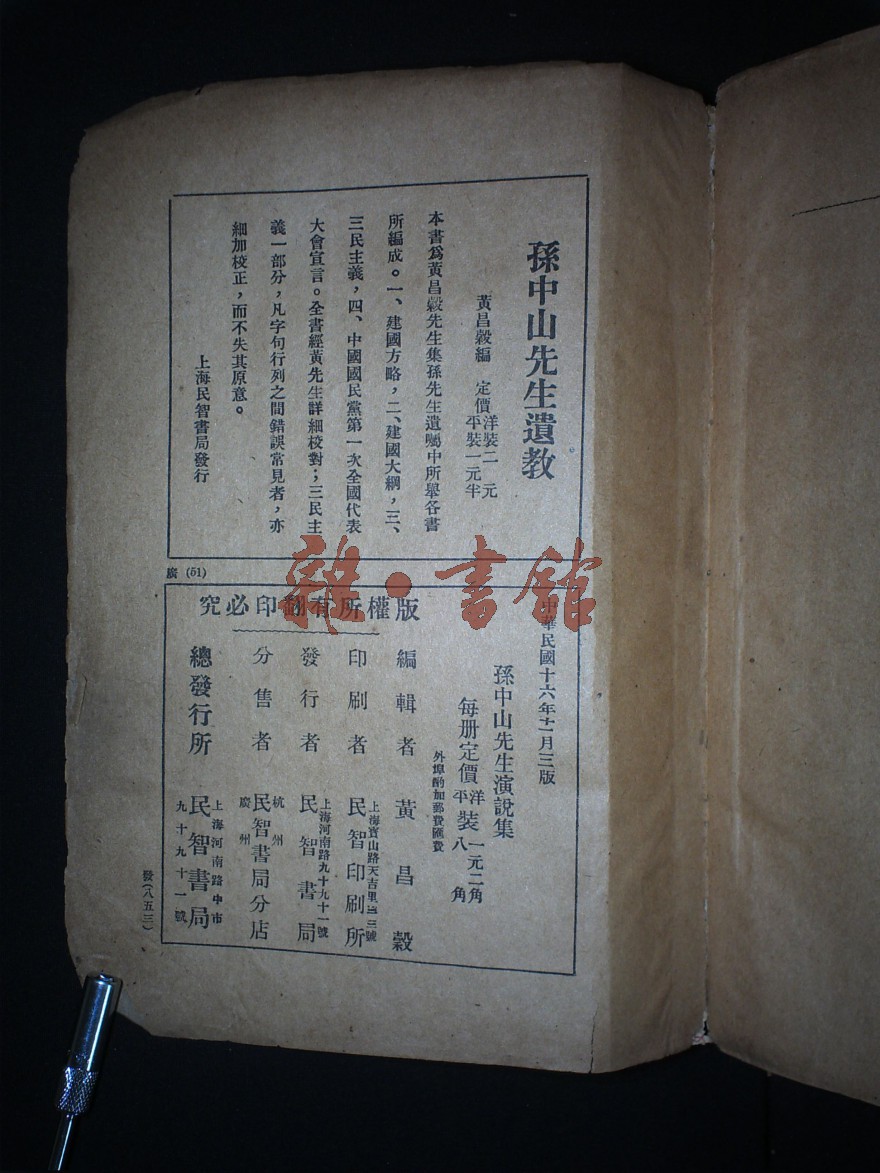 孫中山先生遺教
黃昌穀編　定價洋裝二元平裝一元半
本書為黃昌穀先生集孫先生遺囑中所舉各書
所編成。一、建國方略，二、建國大綱，三、
三民主義，四、中國國民黨第一次全國代表
大會宣言。全書經黃先生詳細校對；三民主
義一部分，凡字句行列之間錯誤常見者，亦
細加校正，而不失其原意。
上海民智書局發行
廣(51)
雜·書館
中華民國十六年十一月三版
孫中山先生演說集
每册定價洋裝一元二角平裝八角
外埠酌加郵費匯費
版權所有翻印必究
編輯者　黃昌穀
印刷者　上海寶山路天吉里
民智印刷所
發行者　上海河南路九十九十一號
民智書局
分售者　杭州廣州
民智書局分店
總發行所　上海河南路中市
民智書局
九十九十一號
發(八五三)